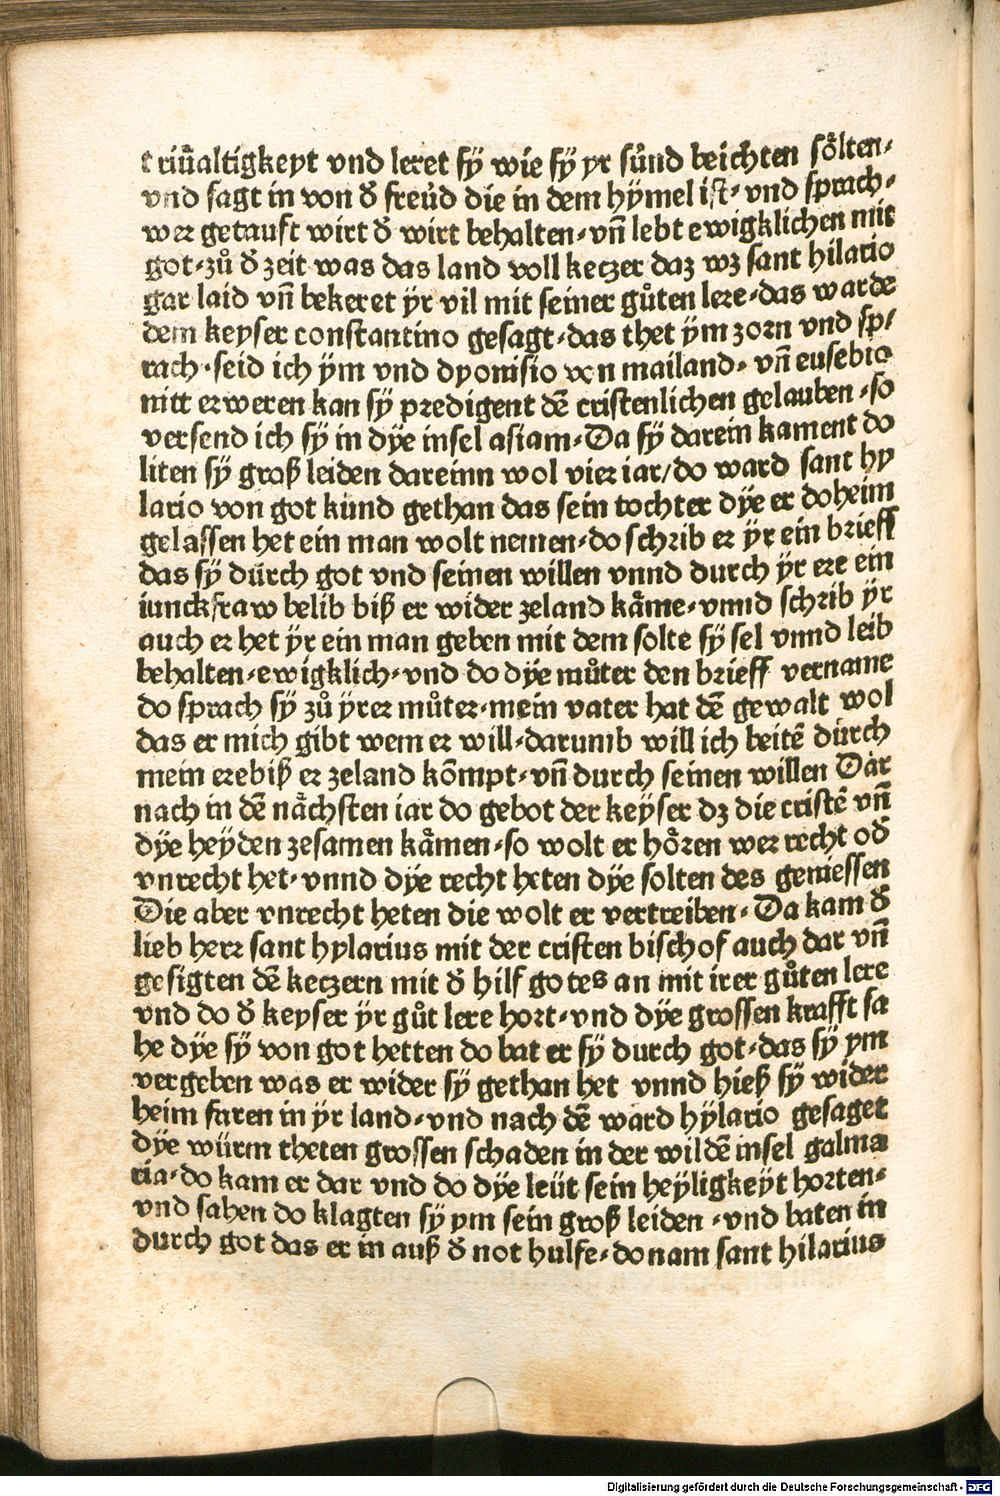 triũaltigkeyt vnd leret sÿ wie sÿ yr sůnd beichten soͤlten-
vnd sagt in von đ freůd die in dem hẏmel ist- vnd sprach-
wer getauft wirt đ wirt behalten-vñ lebt ewigklichen mit
got-zů đ zeit was das land voll keczer daz wz sant hilario
gar laid vñ bekeret ÿr vil mit seiner gůten lere-das warde
dem keyser constantino gesagt-das thet ÿm zorn vnd sp/
rach-seid ich ÿm vnd dyonisio von mailand- vñ eusebio
nitt erweren kan sÿ predigent dē cristenlichen gelauben-so
versend ich sÿ in dÿe insel asiam-Da sÿ darein kament do
liten sÿ groß leiden dareinn wol vier iar/do ward sant hy
lario von got kund gethan das sein tochter dÿe er doheim
gelassen het ein man wolt nemen-do schrib er ÿr ein brieff
das sÿ durch got vnd seinen willen vnnd durch ÿr ere ein
iunckfraw belib biß er wider zeland kaͤme-vnnd schrib ÿr
auch er het ÿr ein man geben mit dem solte sÿ sel vnnd leib
behalten-ewigklich-vnd do dÿe můter den brieff vername
do sprach sÿ zů ÿrer můter-mein vater hat dē gewalt wol
das er mich gibt wem er will-darumb will ich beitē durch
mein erebiß er zeland kōmpt-vñ durch seinen willen Dar
nach in dē naͤchsten iar do gebot der keyser dz die cristē vñ
dÿe heÿden zesamen kaͤmen-so wolt er hoͤren wer recht ođ
vnrecht het-vnnd dÿe recht heten dÿe solten des geniessen
Die aber vnrecht heten die wolt er vertreiben-Da kam đ
lieb herr sant hylarius mit der cristen bischof auch dar vñ
gesigten dē keczern mit đ hilf gotes an mit irer gůten lere
vnd do đ keyser ÿr gůt lere hort-vnd dÿe grossen krafft sa
he dÿe sÿ von got hetten do bat er sÿ durch got-das sÿ ym
vergeben was er wider sÿ gethan het vnnd hieß sÿ wider
heim faren in ÿr land-vnd nach dē ward hÿlario gesaget
dÿe würm theten grossen schaden in der wildē insel galma
ria-do kam er dar vnd do dÿe leüt sein heÿligkeyt horten-
vnd sahen do klagten sÿ ym sein groß leiden-vnd baten in
durch got das er in auß đ not hulfe-do nam sant hilarius
Digitalisierung gefördert durch die Deutsche Forschungsgemeinschaft - DFG